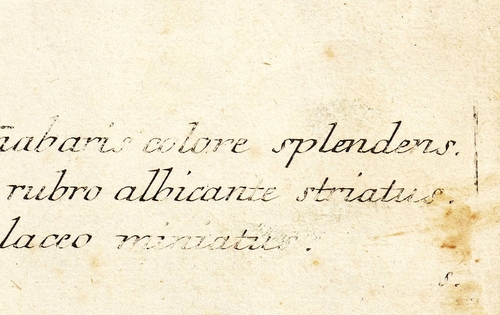 nabaris colore splendens.
rubro albicante striatus.
laceo miniatus.
s.